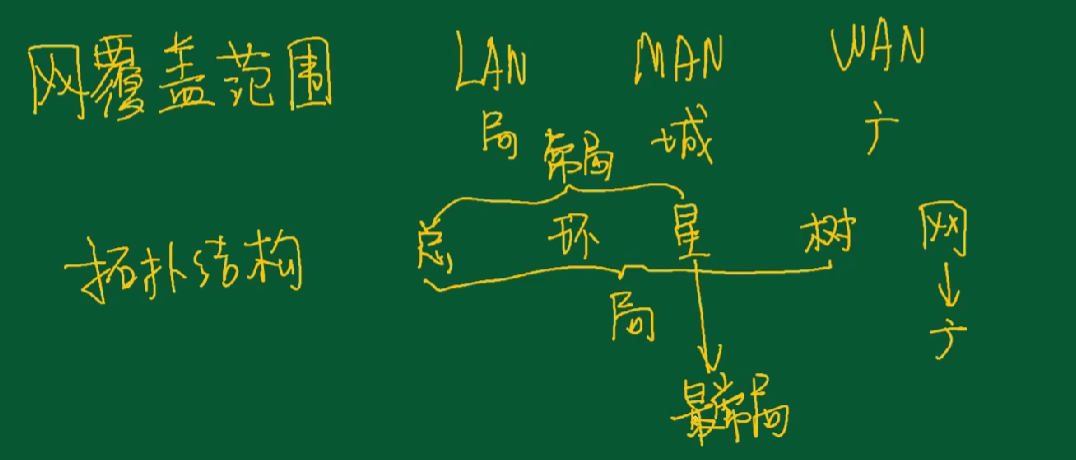 网覆盖范围 LAN MAN WAN
局 城 广
常局
拓扑结构 总 环 星 树 网
局 广
最常局